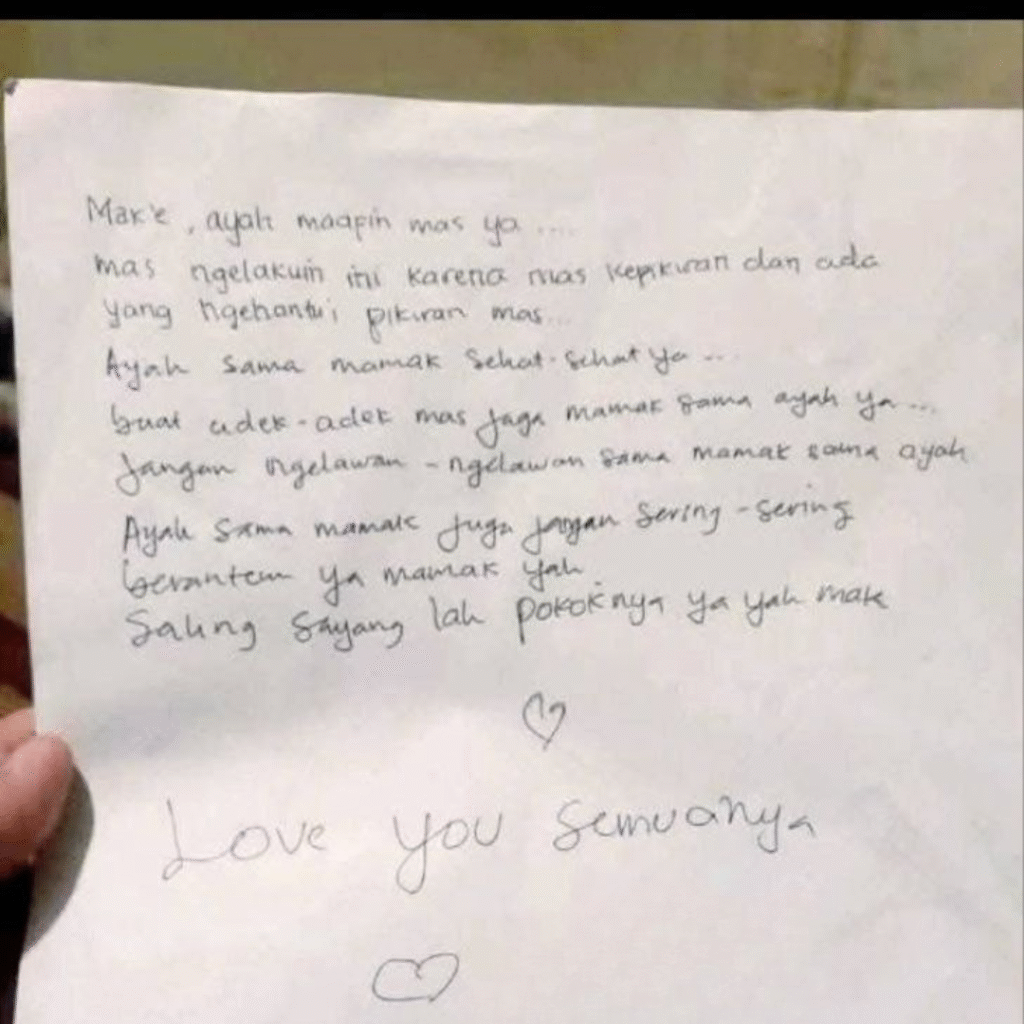 Mak'e, ayah maapin mas ya ....
mas ngelakuin ini karena mas kepikiran dan ada
yang ngehantui pikiran mas...
Ayah sama mamak sehat-sehat ya ...
buat adek-adek mas jaga mamak sama ayah ya...
jangan ngelawan-ngelawan sama mamak sama ayah
Ayah sama mamak juga jangan sering-sering
berantem ya mamak yah
Saling sayang lah pokoknya ya yah mak
Love you semuanya